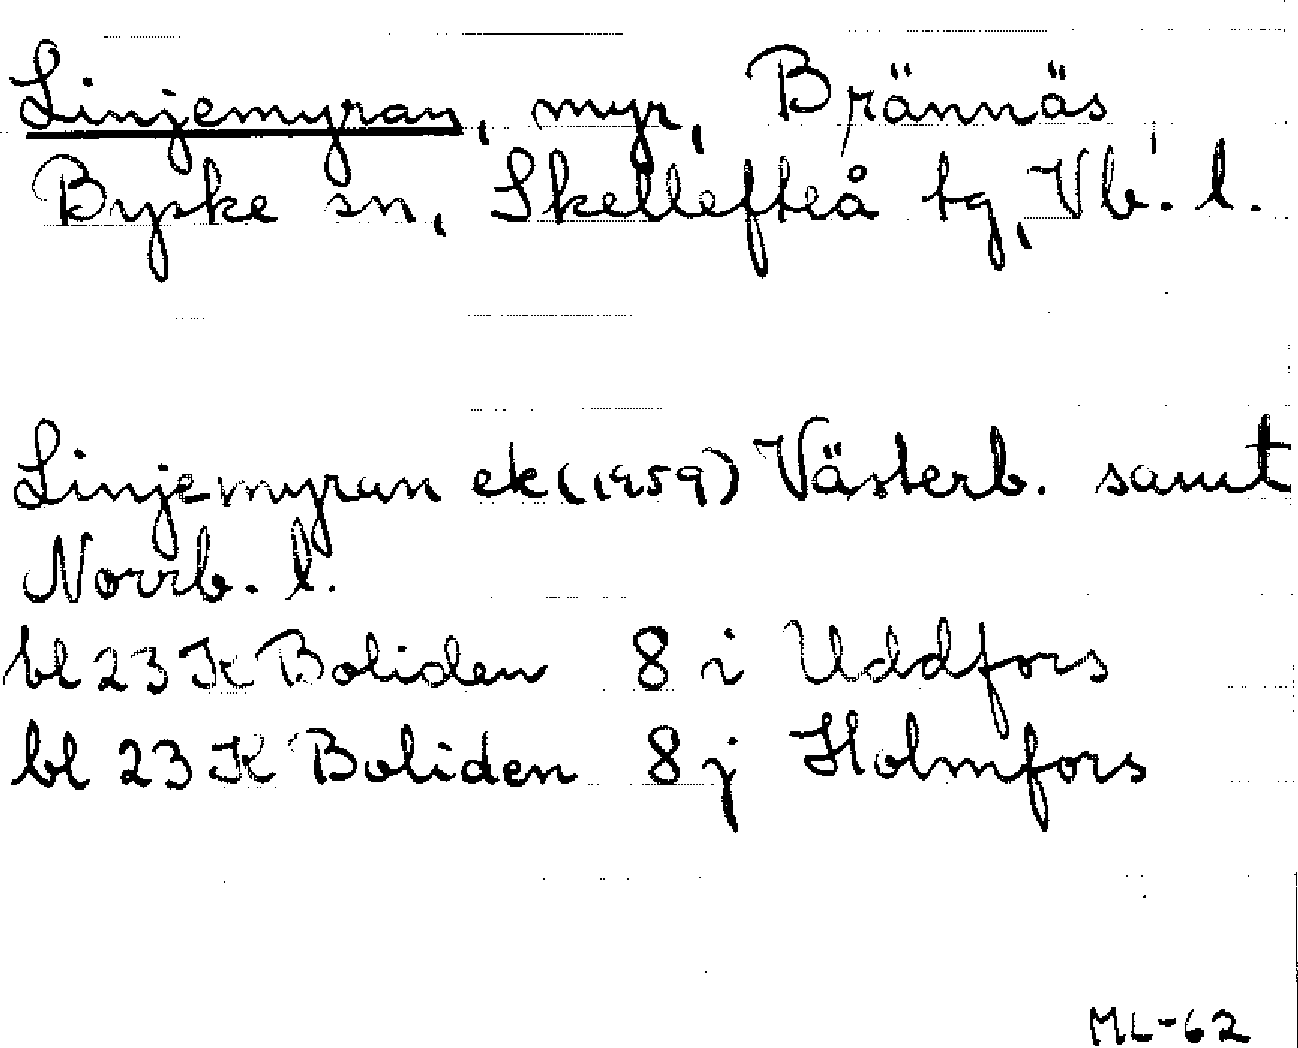 Linjemyran, myr, Brännäs,
Byske sn, Skellefteå tg, Vb. l.
Linjemyran ek (1959) Västerb. samt
Norrb. l.
bl 23 K Boliden 8 i Uddfors
bl 23 K Boliden 8 j Holmfors
ML-62